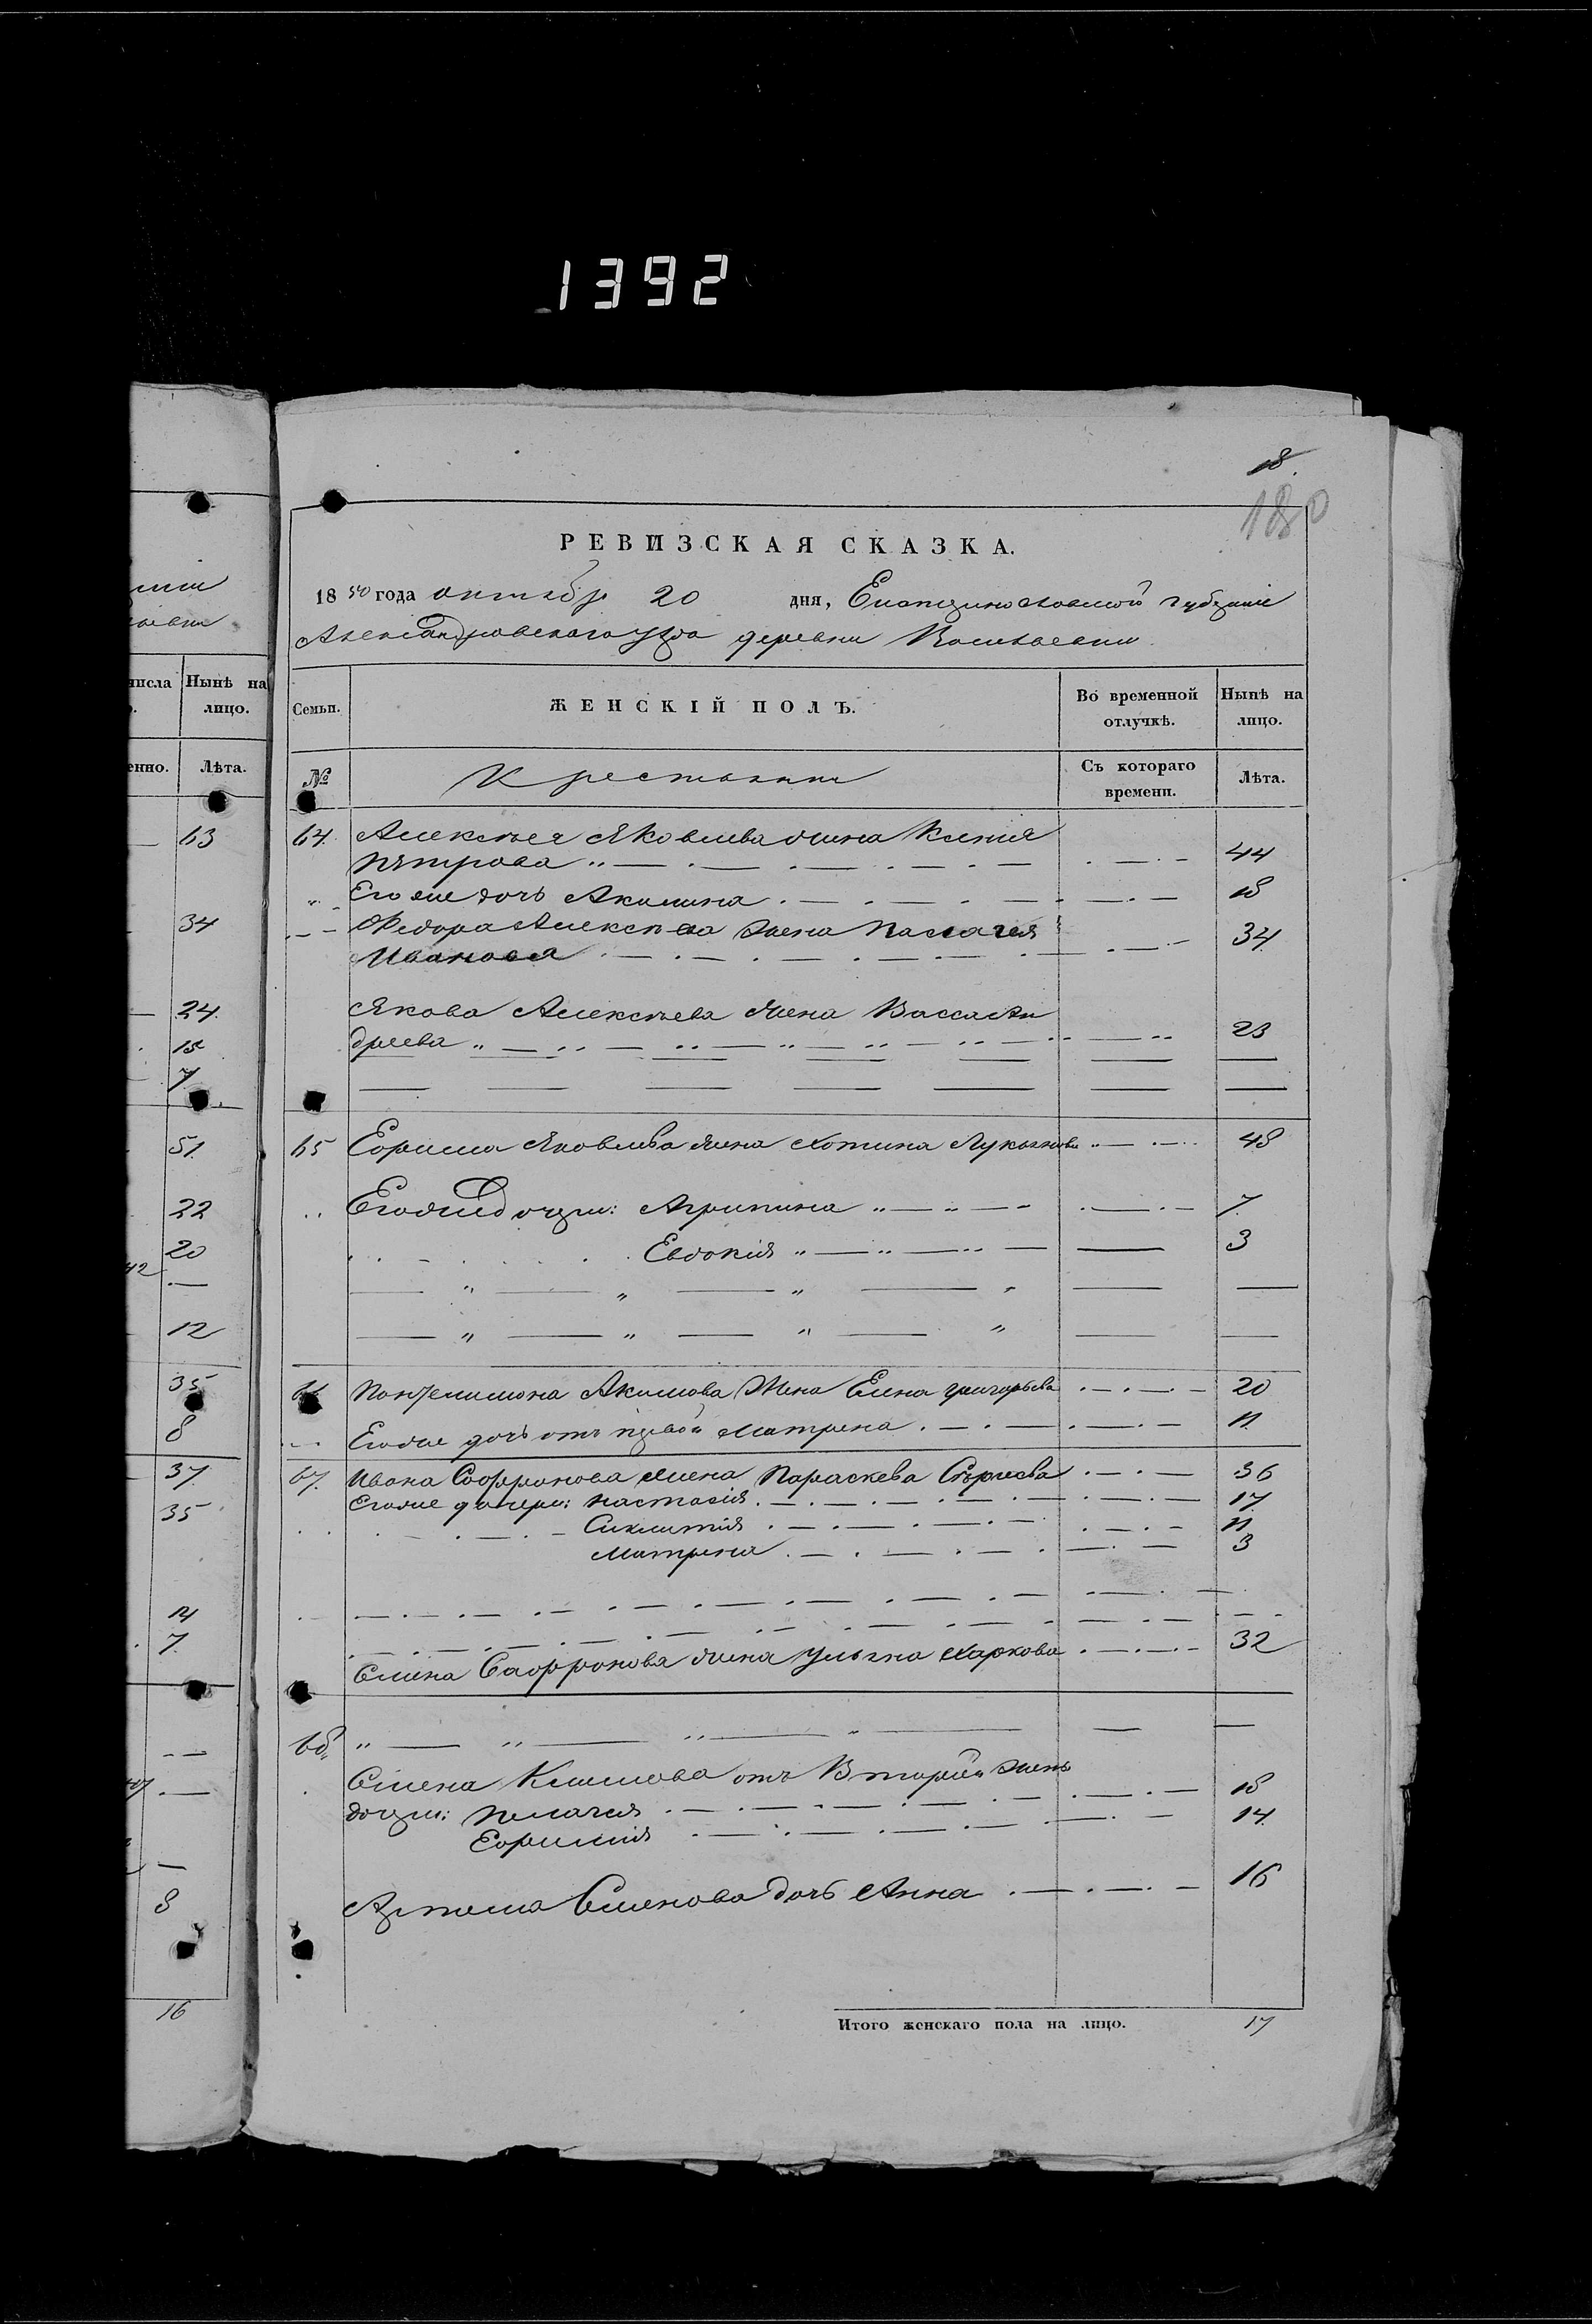 1392
18.
180
РЕВИЗСКАЯ СКАЗКА.
1850 года октября 20 дня, Екатеринославской губерніи
Александровскаго уезда деревни Васильевки
Семьи.
ЖЕНСКІЙ ПОЛЪ.
Во временной отлучкѣ.
Нынѣ на лицо.
№
Крестьяне
Съ котораго времени.
Лѣта.
64. Алексѣя Яковлева жена Ксенія
Петрова 44
Его же дочь Акилина 18
Федора Алексѣева жена Палагея
Иванова 34
Якова Алексѣева жена Васса Ан
дреева 23
65 Ефима Яковлева жена Хотина Лукьянова 48
Его же дочери: Агрипина 7
Евдокія 3
66 Пантелимона Акимова жена Елена григорьева 20
Его же дочь отъ первой Матрена 11
67. Ивана Софронова жена Параскева Сергѣева 36
Его же дочери: Настасія 17
Матрена 3
Семена Сафронова жена Ульяна Харкова 32
68.
Семена Климова отъ Второй жены
дочери: Пелагея 18
Ефимія 14
Артема Семенова дочь Анна 16
Итого женскаго пола на лицо. 17
числа
Нынѣ на лицо.
енно.
Лѣта.
63
34
24.
15
7
51.
22
20
42
12
35
8
37
35
14
7.
8
16